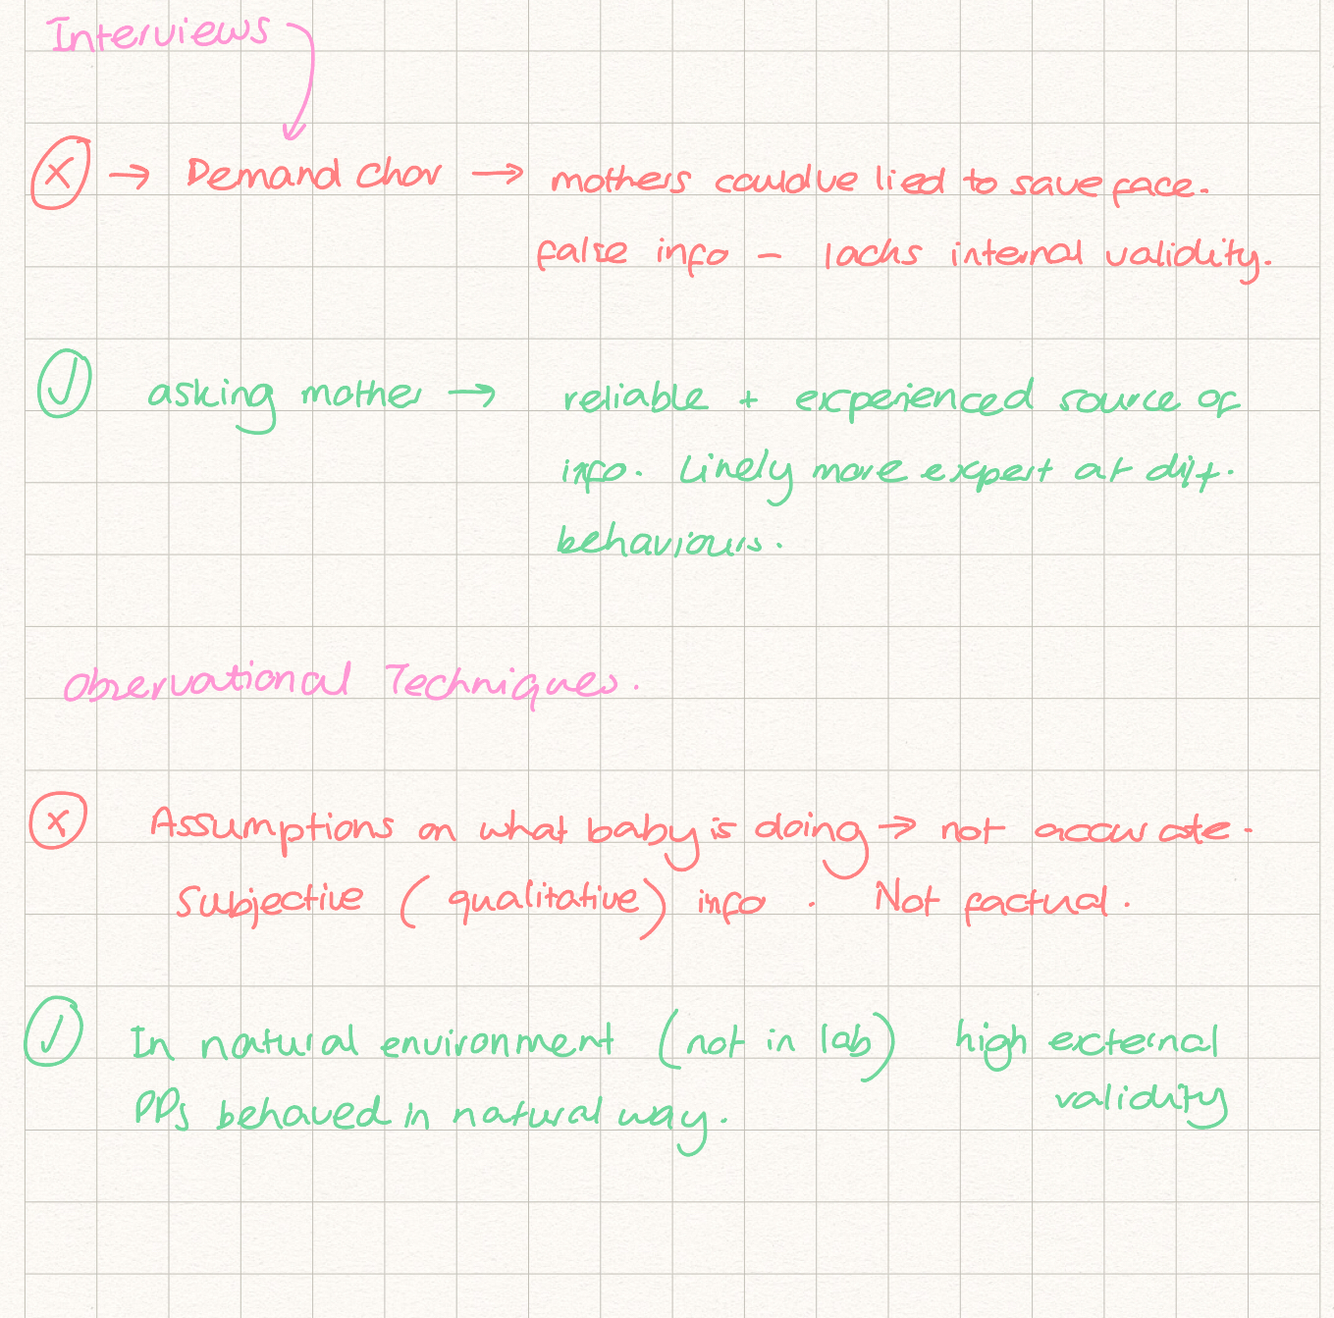 Interviews
X → Demand Char → mothers could've lied to save face.
false info - lacks internal validity.
✓ asking mother → reliable + experienced source of
info. Likely more expert at diff.
behaviours.
Observational Techniques.
X Assumptions on what baby is doing → not accurate.
Subjective (qualitative) info. Not factual.
✓ In natural environment (not in lab) high external
validity
PPs behaved in natural way.